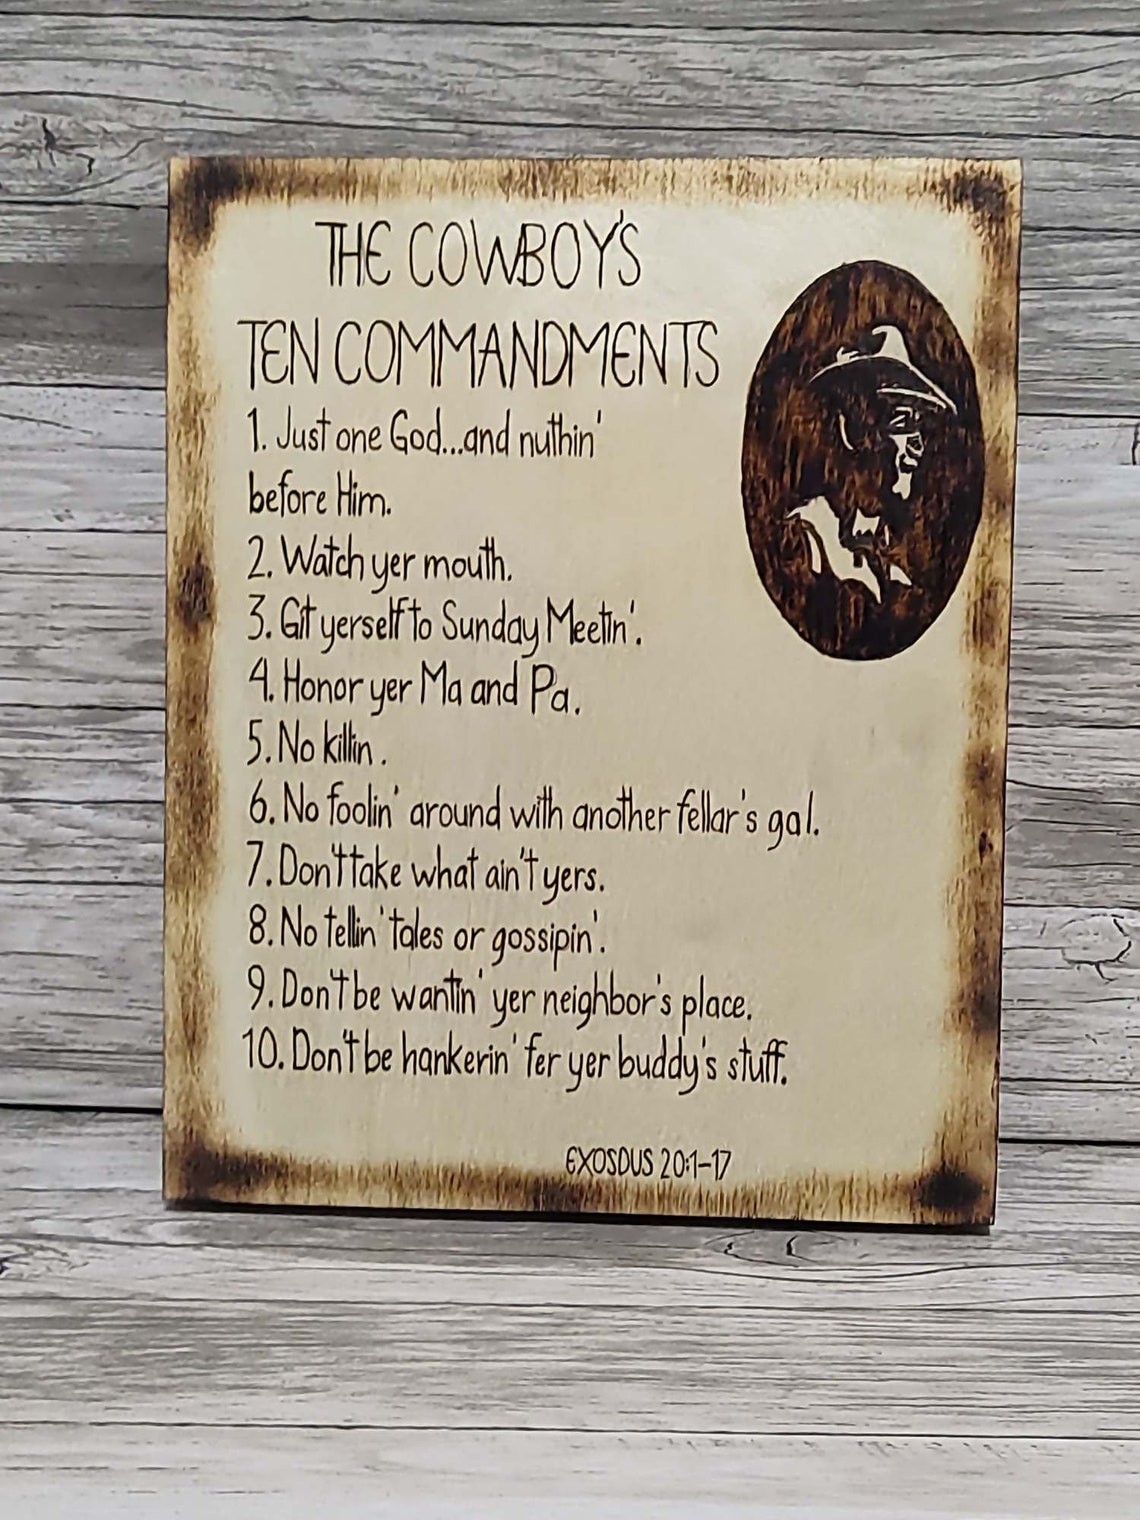 THE COWBOY'S
TEN COMMANDMENTS
1. Just one God...and nuthin'
before Him.
2. Watch yer mouth.
3. Git yerself to Sunday Meetin'.
4. Honor yer Ma and Pa.
5. No killin.
6. No foolin' around with another fellar's gal.
7. Don't take what ain't yers.
8. No tellin' tales or gossipin'.
9. Don't be wantin' yer neighbor's place.
10. Don't be hankerin' fer yer buddy's stuff.
EXOSDUS 20:1-17